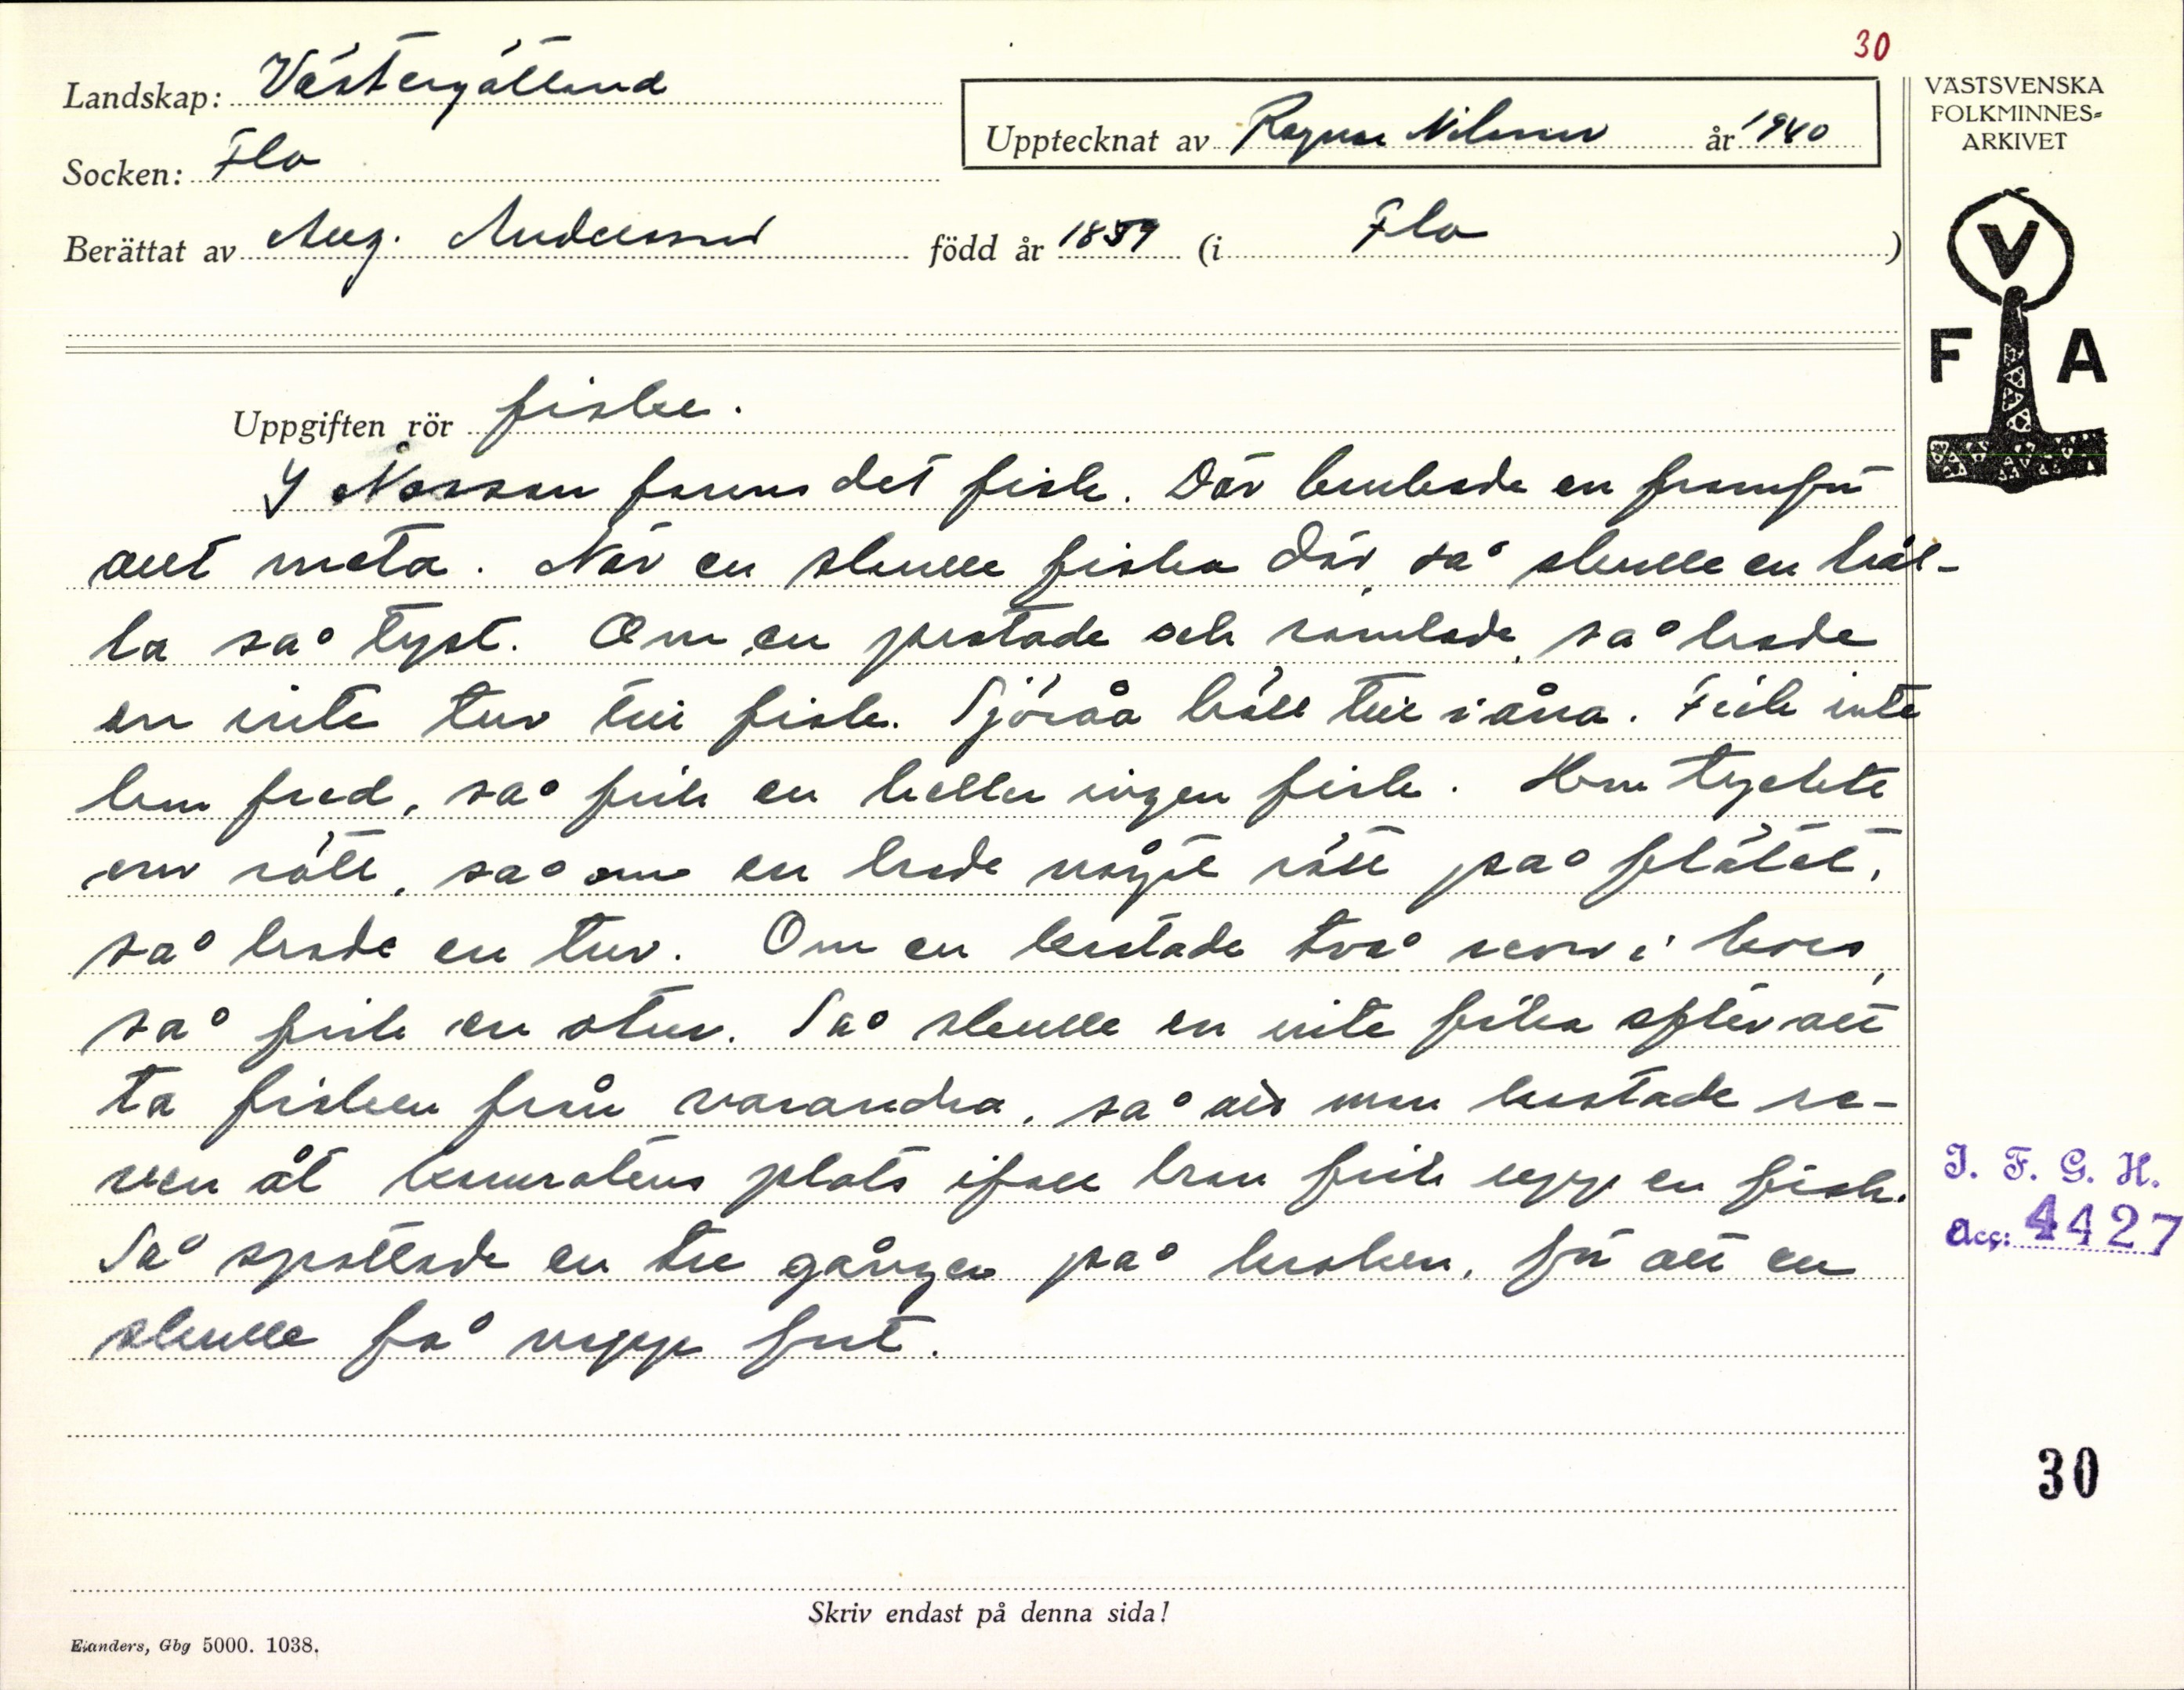 30
Landskap: Västergötland
Upptecknat av Ragnar Nilsson år 1940
VÄSTSVENSKA
FOLKMINNES-
ARKIVET
Socken: Flo
Berättat av Aug. Andersson född år 1859 (i Flo)
V
F A
Uppgiften rör fiske.
I Nossan fanns det fisk. Där brukade en framför
allt meta. När en skulle fiska där, så skulle en hål-
la så tyst. Om en pratade och ramlade, så hade
en inte tur till fisk. Sjöråa höll till i åna. Fick inte
hon fred, så fick en heller ingen fisk. Hon tyckte
om rött, så om en hade något rött på flötet,
så hade en tur. Om en kastade två revar i kors,
så fick en otur. Så skulle en inte fika efter att
ta fisken från varandra, så att man kastade re-
ven åt kamratens plats ifall han fick upp en fisk.
Så spottade en tre gånger på kroken, för att en
skulle få napp fort.
I. F. G. H.
Acc: 4427
30
Skriv endast på denna sida!
Elanders, Gbg 5000. 1038.